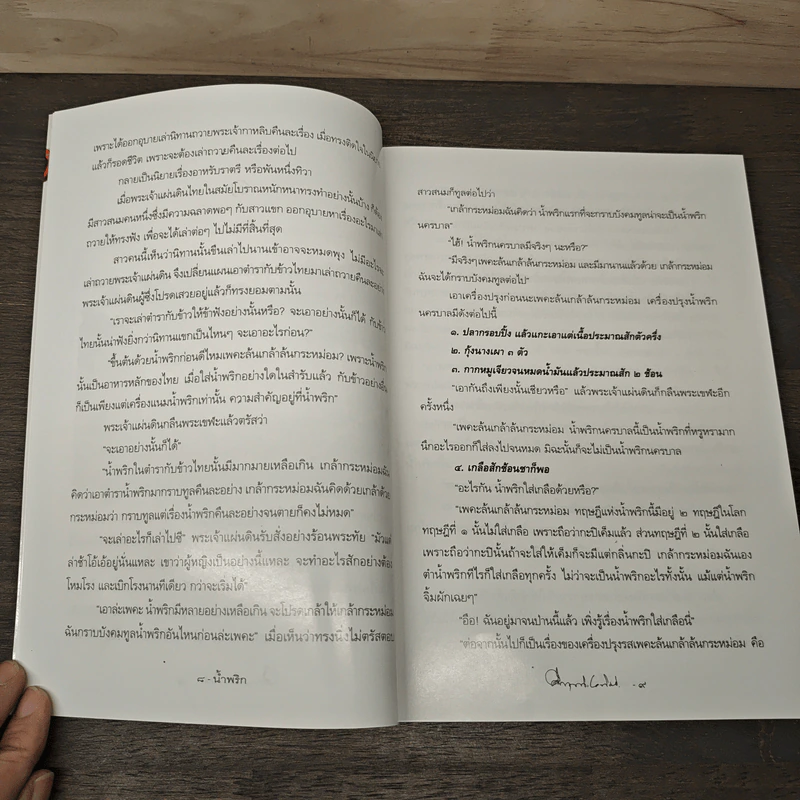 เพราะได้ออกอุบายเล่านิทานถวายพระเจ้ากาหลิบคืนละเรื่อง เมื่อทรงติดใจใน
แล้วก็รอดชีวิต เพราะจะต้องเล่าถวายคืนละเรื่องต่อไป
กลายเป็นนิยายเรื่องอาหรับราตรี หรือพันหนึ่งทิวา
เมื่อพระเจ้าแผ่นดินไทยในสมัยโบราณหนักหนาทรงทำอย่างนั้นบ้าง
มีสาวสนมคนหนึ่งซึ่งมีความฉลาดพอๆ กับสาวแขก ออกอุบายหาเรื่องอะไร
ถวายให้ทรงฟัง เพื่อจะได้เล่าต่อๆ ไปไม่มีที่สิ้นที่สุด
สาวคนนี้เห็นว่านิทานนั้นขืนเล่าไปนานเข้าอาจจะหมดพุง ไม่มีอะไร
เล่าถวายพระเจ้าแผ่นดิน จึงเปลี่ยนแผนเอาตำรากับข้าวไทยมาเล่าถวายคืนละอย่าง
พระเจ้าแผ่นดินผู้ซึ่งโปรดเสวยอยู่แล้วก็ทรงยอมตามนั้น
"เราจะเล่าตำรากับข้าวให้ข้าฟังอย่างนั้นหรือ? จะเอาอย่างนั้นก็ได้ กับข้าว
ไทยนั้นน่าฟังยิ่งกว่านิทานแขกเป็นไหนๆ จะเอาอะไรก่อน?"
"ขึ้นต้นด้วยน้ำพริกก่อนดีไหมเพคะล้นเกล้าล้นกระหม่อม? เพราะน้ำพริก
นั้นเป็นอาหารหลักของไทย เมื่อใส่น้ำพริกอย่างใดในสำรับแล้ว กับข้าวอย่างอื่น
ก็เป็นเพียงแต่เครื่องแนมน้ำพริกเท่านั้น ความสำคัญอยู่ที่น้ำพริก"
พระเจ้าแผ่นดินกลืนพระเขฬะแล้วตรัสว่า
"จะเอาอย่างนั้นก็ได้"
"น้ำพริกในตำรากับข้าวไทยนั้นมีมากมายเหลือเกิน เกล้ากระหม่อมฉัน
คิดว่าเอาตำราน้ำพริกมากราบทูลคืนละอย่าง เกล้ากระหม่อมฉันคิดด้วยเกล้าด้วย
กระหม่อมว่า กราบทูลแต่เรื่องน้ำพริกคืนละอย่างจนตายก็คงไม่หมด"
"จะเล่าอะไรก็เล่าไปซี" พระเจ้าแผ่นดินรับสั่งอย่างร้อนพระทัย "มัวแต่
ล่าช้าโอ้เอ้อยู่นั่นแหละ เขาว่าผู้หญิงเป็นอย่างนี้แหละ จะทำอะไรสักอย่างต้อง
โหมโรง และเบิกโรงนานทีเดียว กว่าจะเริ่มได้"
"เอาล่ะเพคะ น้ำพริกมีหลายอย่างเหลือเกิน จะโปรดเกล้าให้เกล้ากระหม่อม
ฉันกราบบังคมทูลน้ำพริกอันไหนก่อนล่ะเพคะ" เมื่อเห็นว่าทรงนิ่งไม่ตรัสตอบ
๘ - น้ำพริก
สาวสนมก็ทูลต่อไปว่า
"เกล้ากระหม่อมฉันคิดว่า น้ำพริกแรกที่จะกราบบังคมทูลน่าจะเป็นน้ำพริก
นครบาล"
"ไฮ้! น้ำพริกนครบาลมีจริงๆ นะหรือ?"
"มีจริงๆ เพคะล้นเกล้าล้นกระหม่อม และมีมานานแล้วด้วย เกล้ากระหม่อม
ฉันจะได้กราบบังคมทูลต่อไป"
เอาเครื่องปรุงก่อนนะเพคะล้นเกล้าล้นกระหม่อม เครื่องปรุงน้ำพริก
นครบาลมีดังต่อไปนี้
๑. ปลากรอบปิ้ง แล้วแกะเอาแต่เนื้อประมาณสักตัวครึ่ง
๒. กุ้งนางเผา ๓ ตัว
๓. กากหมูเจียวจนหมดน้ำมันแล้วประมาณสัก ๒ ช้อน
"เอากันถึงเพียงนั้นเชียวหรือ" แล้วพระเจ้าแผ่นดินก็กลืนพระเขฬะอีก
ครั้งหนึ่ง
"เพคะล้นเกล้าล้นกระหม่อม น้ำพริกนครบาลนี้เป็นน้ำพริกที่หรูหรามาก
นึกอะไรออกก็ใส่ลงไปจนหมด มิฉะนั้นก็จะไม่เป็นน้ำพริกนครบาล
๔. เกลือสักช้อนชาก็พอ
"อะไรกัน น้ำพริกใส่เกลือด้วยหรือ?"
"เพคะล้นเกล้าล้นกระหม่อม ทฤษฎีแห่งน้ำพริกนี้มีอยู่ ๒ ทฤษฎีในโลก
ทฤษฎีที่ ๑ นั้นไม่ใส่เกลือ เพราะถือว่ากะปิเค็มแล้ว ส่วนทฤษฎีที่ ๒ นั้นใส่เกลือ
เพราะถือว่ากะปินั้นถ้าจะใส่ให้เค็มก็จะมีแต่กลิ่นกะปิ เกล้ากระหม่อมฉันเอง
ตำน้ำพริกทีไรก็ใส่เกลือทุกครั้ง ไม่ว่าจะเป็นน้ำพริกอะไรทั้งนั้น แม้แต่น้ำพริก
จิ้มผักเฉยๆ"
"อือ! ฉันอยู่มาจนปานนี้แล้ว เพิ่งรู้เรื่องน้ำพริกใส่เกลือนี่"
"ต่อจากนั้นไปก็เป็นเรื่องของเครื่องปรุงรสเพคะล้นเกล้าล้นกระหม่อม คือ
- ๙